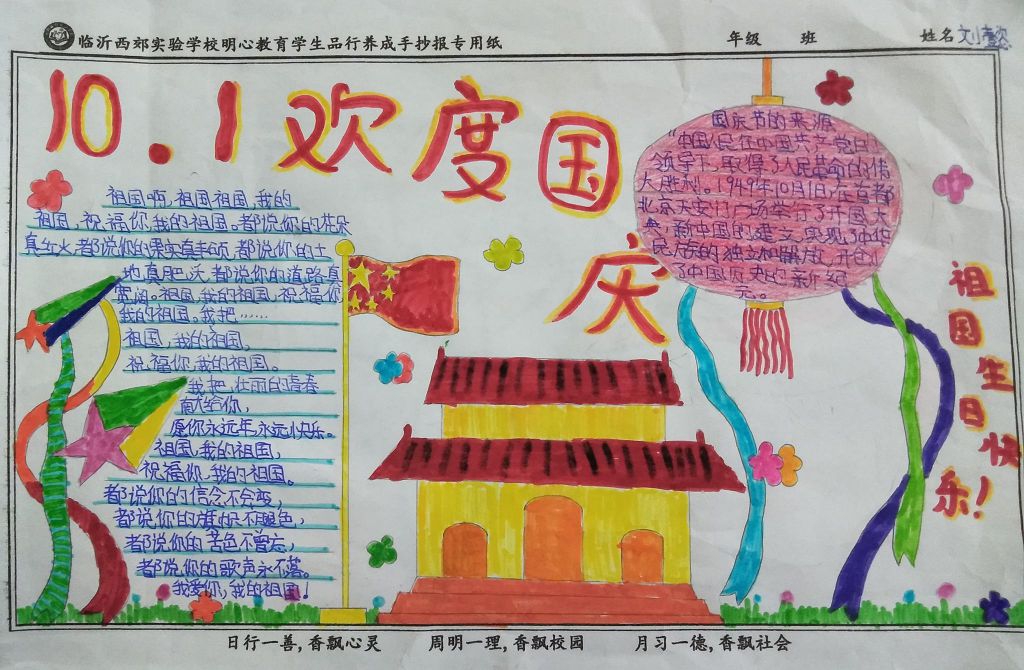 临沂西郊实验学校明心教育学生品行养成手抄报专用纸
年级 班 姓名
10.1欢度国
庆
祖国啊,祖国祖国,我的
祖国,祝福你,我的祖国。都说你的花朵
真红火,都说你的果实真丰硕,都说你的土
地真肥沃,都说你的道路真
宽阔。祖国,我的祖国,祝福你
我的祖国。我把……
祖国,我的祖国,
祝福你,我的祖国。
我把,壮丽的青春
献给你,
愿你永远年,永远快乐。
祖国,我的祖国,
祝福你,我的祖国。
都说你的信念不会变,
都说你的旗帜不褪色,
都说你的苦色不曾忘,
都说你的歌声永不落。
我爱你,我的祖国!
国庆节的来源
"中国人民在中国共产党日
领导下,取得了人民革命的伟
大胜利。1949年10月1日,在首都
北京天安门广场举行了开国大
典,新中国的建立,实现了中华
民族的独立和解放,开创
了中国历史的新纪
元。
祖国生日快乐!
日行一善,香飘心灵 周明一理,香飘校园 月习一德,香飘社会